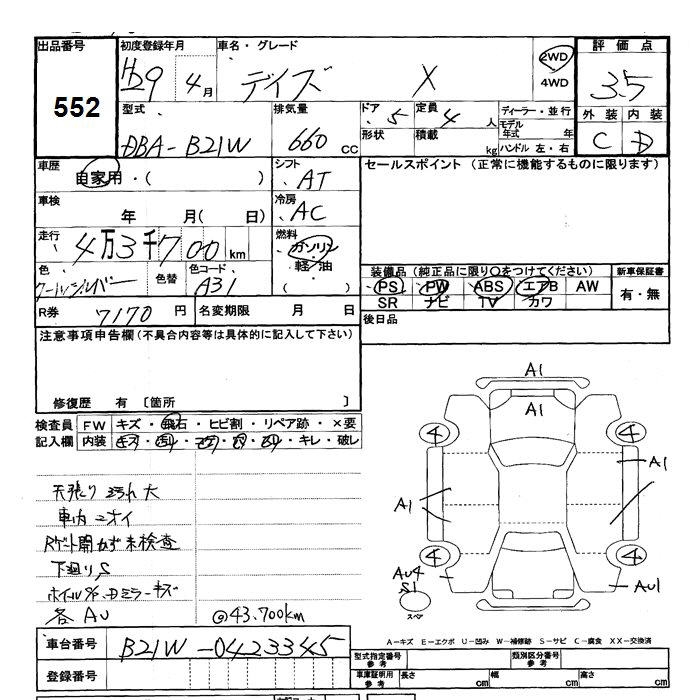 出品番号 552
初度登録年月 H29 4月
車名・グレード デイズ X
2WD
4WD
評価点 3.5
外装 内装
C D
型式 DBA-B21W
排気量 660 cc
ドア 5
定員 4 人
形状 積載 kg
ディーラー・並行
モデル年式 年
ハンドル 左・右
車歴 自家用・( )
シフト AT
セールスポイント (正常に機能するものに限ります)
車検 年 月( 日)
冷房 AC
走行 4万3千700km
燃料 ガソリン
軽・油
( )
色 クールシルバー
色替
色コード A31
装備品 (純正品に限り○をつけてください)
新車保証書
PS PW ABS エアB AW
有・無
SR ナビ TV カワ
R券 7170 円
名変期限 月 日
後日品
注意事項申告欄 (不具合内容等は具体的に記入して下さい)
修復歴 有 〔箇所 〕
検査員 FW キズ・飛石・ヒビ割・リペア跡・×要
記入欄 内装 キレ・破レ
天張り 汚れ大
車内ニオイ
Rゲート開かず未検査
下廻りS
ミラーキズ
各AU
@43.700km
A1
A1
4 4
A1
A1
4 4
AU4
S1
AU1
スペア
A-キズ E-エクボ U-凹み W-補修跡 S-サビ C-腐食 XX-交換済
車台番号 B21W-0423345
型式指定番号 参考
類別区分番号 参考
登録番号
車庫証明用 参考 長さ cm 幅 cm 高さ cm